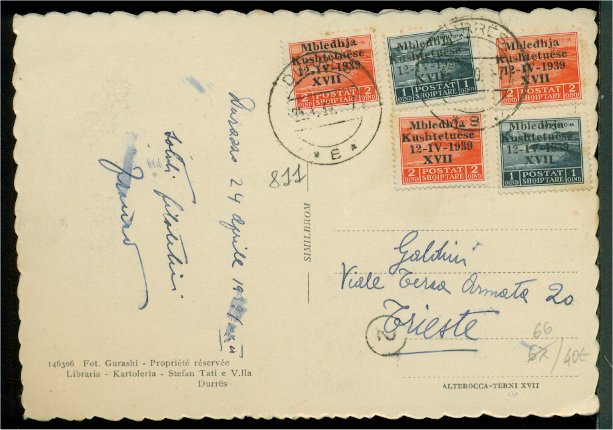 Mbledhja
Kushtetuëse
12-IV-1939
XVII
2 POSTAT 2
QIND SHQIPTARE QIND
Mbledhja
Kushtetuëse
12-IV-1939
XVII
1 POSTAT 1
QIND SHQIPTARE QIND
Mbledhja
Kushtetuëse
12-IV-1939
XVII
2 POSTAT 2
QIND SHQIPTARE QIND
Mbledhja
Kushtetuëse
12-IV-1939
XVII
2 POSTAT 2
QIND SHQIPTARE QIND
Mbledhja
Kushtetuëse
12-IV-1939
XVII
1 POSTAT 1
QIND SHQIPTARE QIND
* 8 *
811
Durazzo 24 Aprile
saluti filatelici
MORBLEHIMS
Galdini
Viale Terza Armata 20
Trieste
2
66
67/40€
146306 Fot. Gurashi - Propriété réservée
Libraria - Kartoleria - Stefan Tati e V.lla
Durrës
ALTEROCCA-TERNI XVII